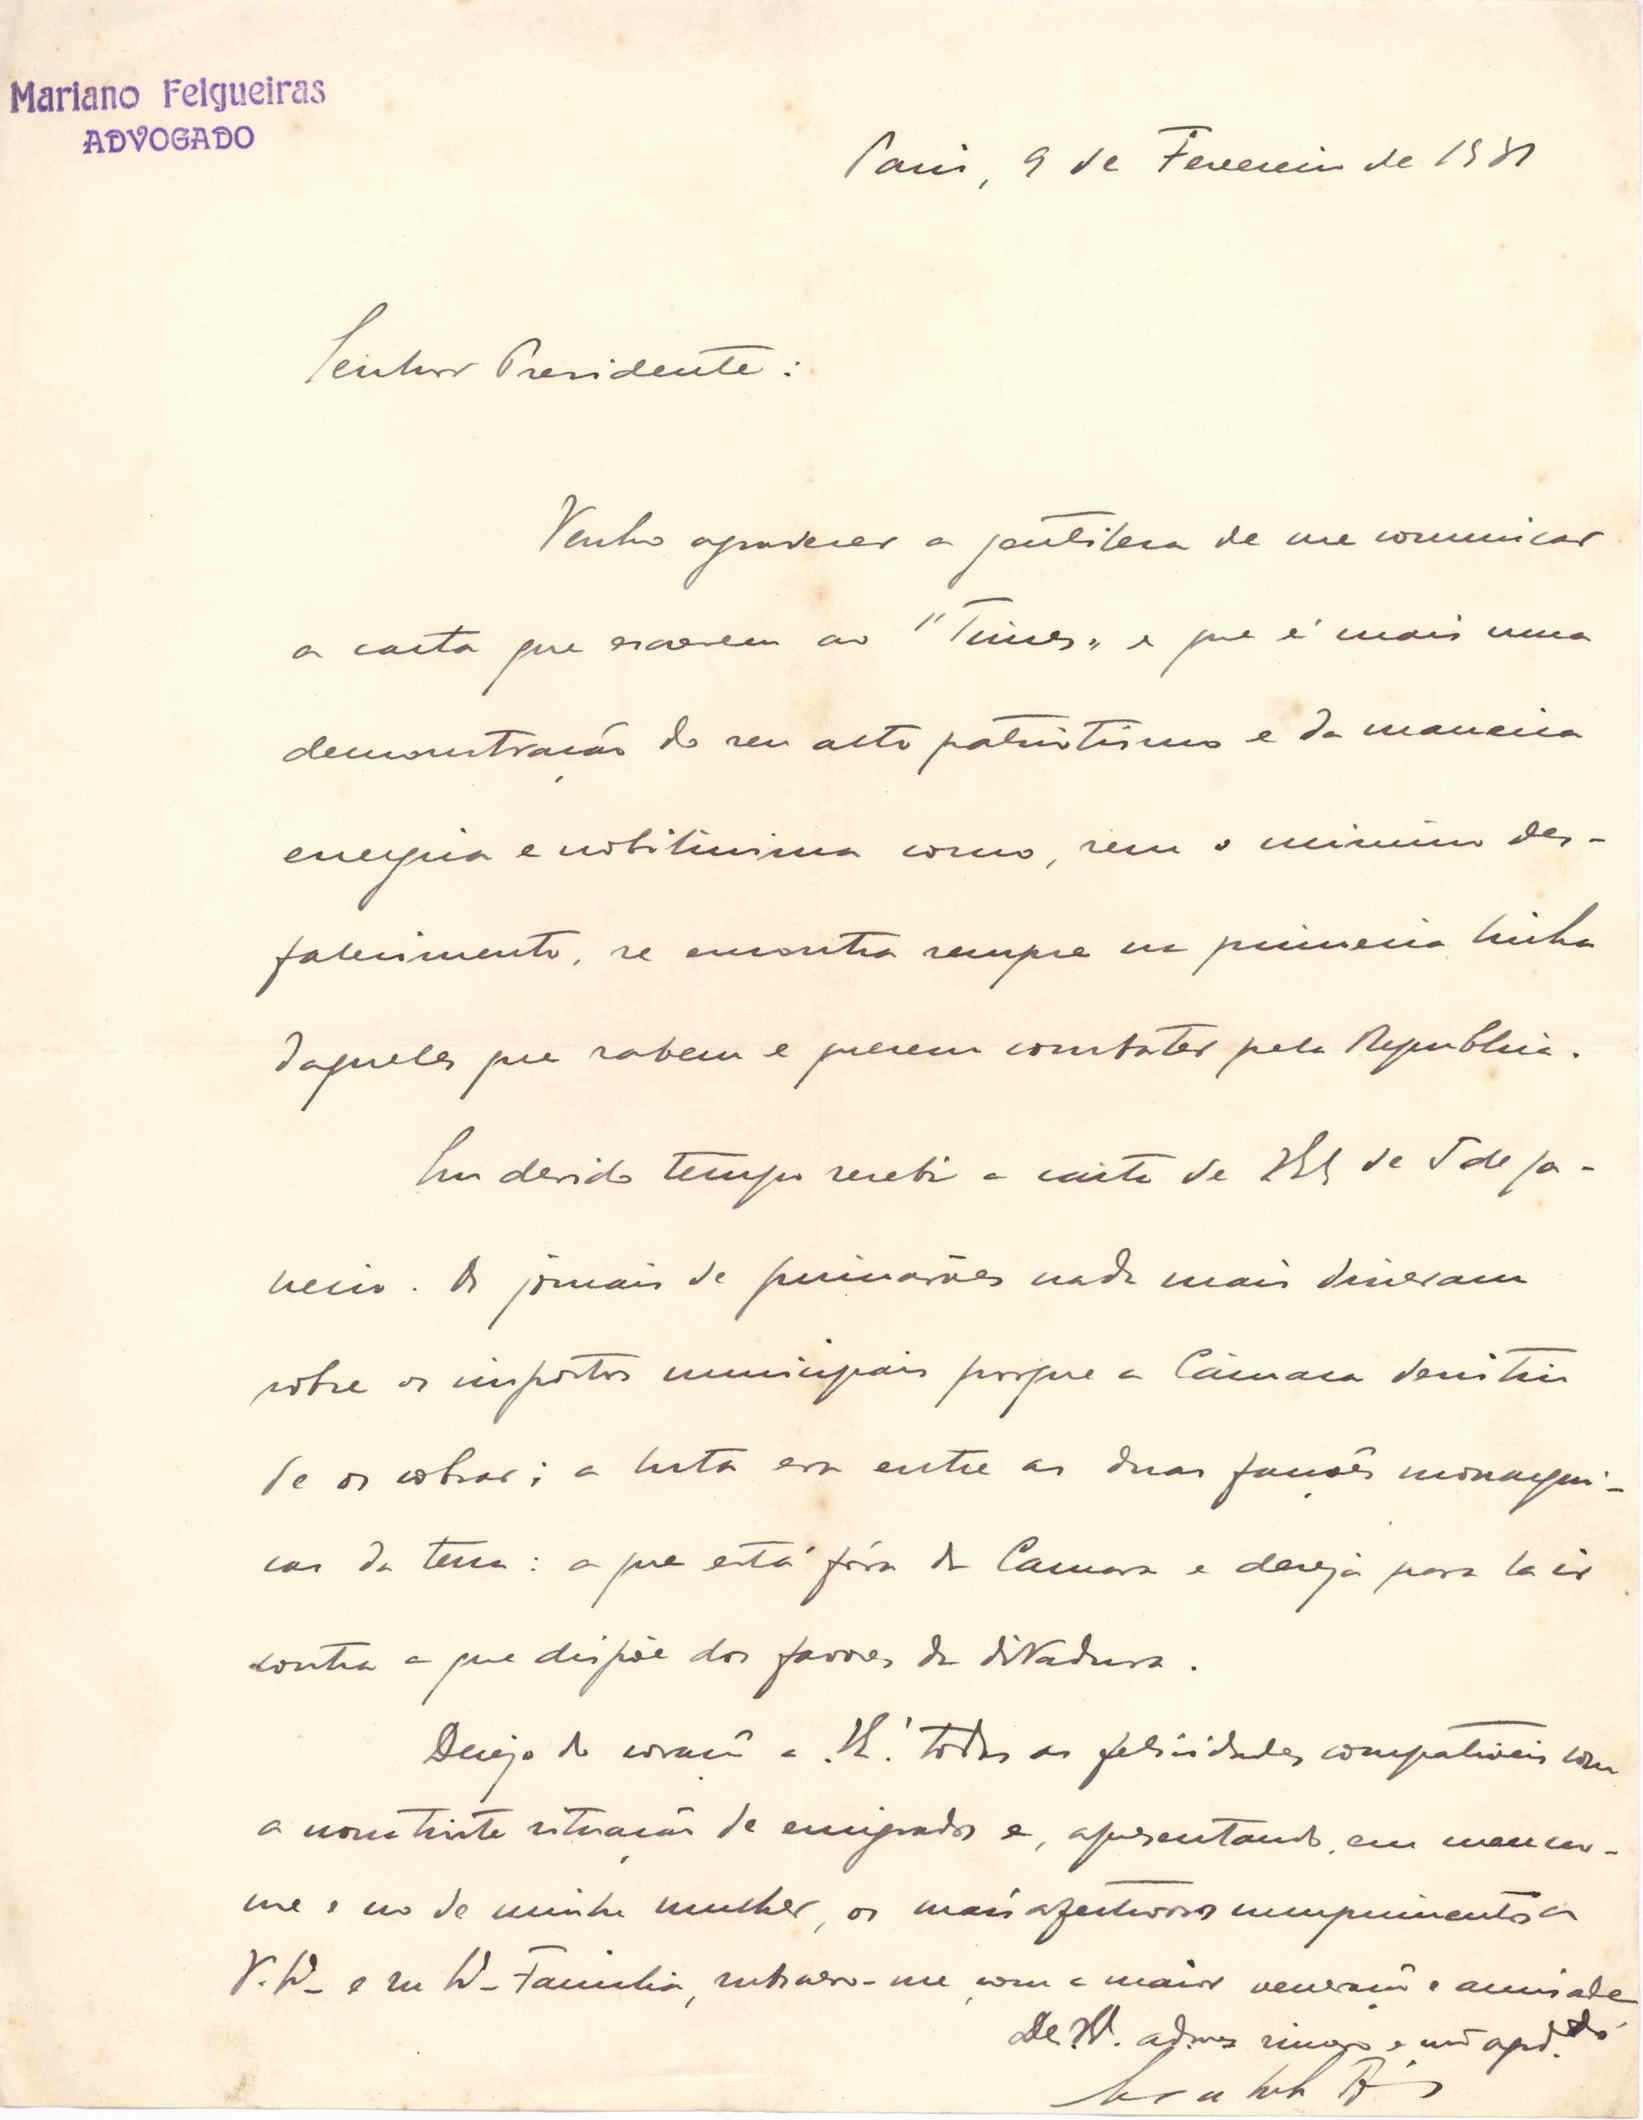 Mariano Felgueiras
ADVOGADO
Paris, 9 de Fevereiro de 1931
Senhor Presidente:
Venho agradecer a gentileza de me comunicar
a carta que escreveu ao "Times" e que é mais uma
demonstração do seu alto patriotismo e da maneira
energica e nobilissima como, sem o minimo des-
falecimento, se encontra sempre na primeira linha
daqueles que sabem e querem combater pela Republica.
Em devido tempo recebi a carta de de 5 de Ja-
neiro. Os jornais de Guimarães nada mais disseram
sobre os impostos municipais porque a Câmara desistiu
de os cobrar; a luta era entre as duas facções monarqui-
cas da terra: a que está fóra da Camara e deseja para lá ir
contra a que dispõe dos favores da ditadura.
Desejo do coração a todas as felicidades compativeis com
a nossa triste situação de emigrados e, apresentando, em meu no-
me e no de minha mulher, os mais afectuosos cumprimentos a
V. e Familia, subscrevo-me, com a maior veneração e amisade
De